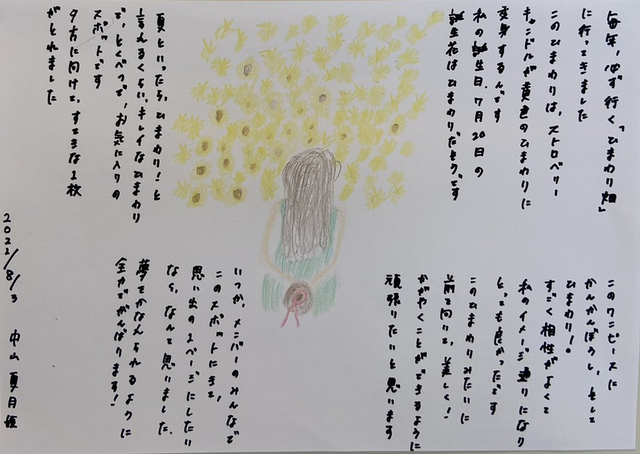 毎年、必ず行く「ひまわり畑」
に行ってきました
このひまわりは、ストロベリー
キャンドルが黄色のひまわりに
変身するんです
私の誕生日、7月20日の
誕生花はひまわりだそうです
夏といったら、ひまわり!と
言えるくらい、キレイなひまわり
で、とくべつで、お気に入りの
スポットです
夕方に向けて、すてきな1枚
がとれました
このワンピースに
かんかんぼうし、そして
ひまわり!。
すごく相性がよくて
私のイメージ通りになり
とっても良かったです
このひまわりみたいに
前を向いて、美しく!
かがやくことができるように
頑張りたいと思います
いつか、メンバーのみんなで
このスポットにきて、
思い出の1ページにしたい
なら、なんて思いました、
夢でかなえられるように
全力でがんばります!
2022/8/3 中山 夏月姫